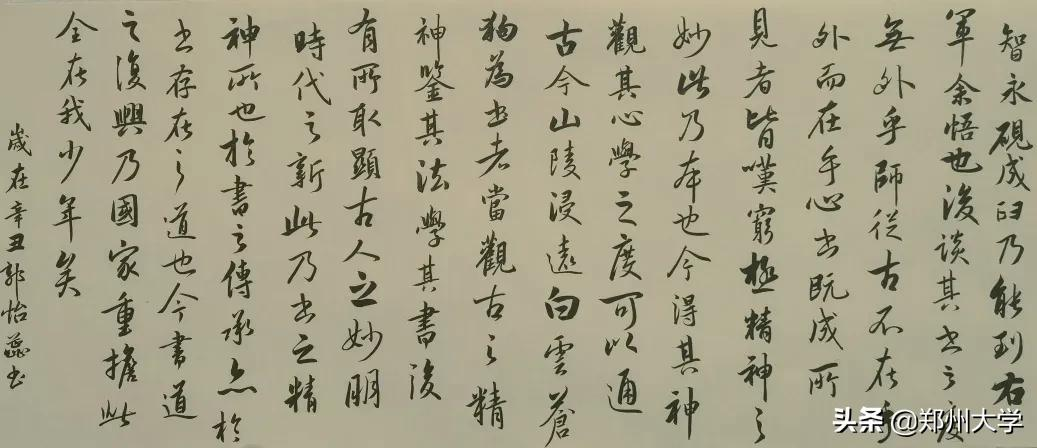 智永硯成臼乃能到右
軍余悟也後談其书之度
無外乎師從古不在手
外而在乎心书既成所
見者皆嘆窮極精神之
妙此乃本也今得其神
觀其心學之度可以通
古今山陵浸遠白雲蒼
狗為书者當觀古之精
神鑒其法學其書後
有所取顯古人之妙明
時代之新此乃书之精
神所也於書之傳承亦於
书存在之道也今書道
之復興乃國家重擔此
全在我少年矣
歲在辛丑郭怡蕊书
头条@郑州大学